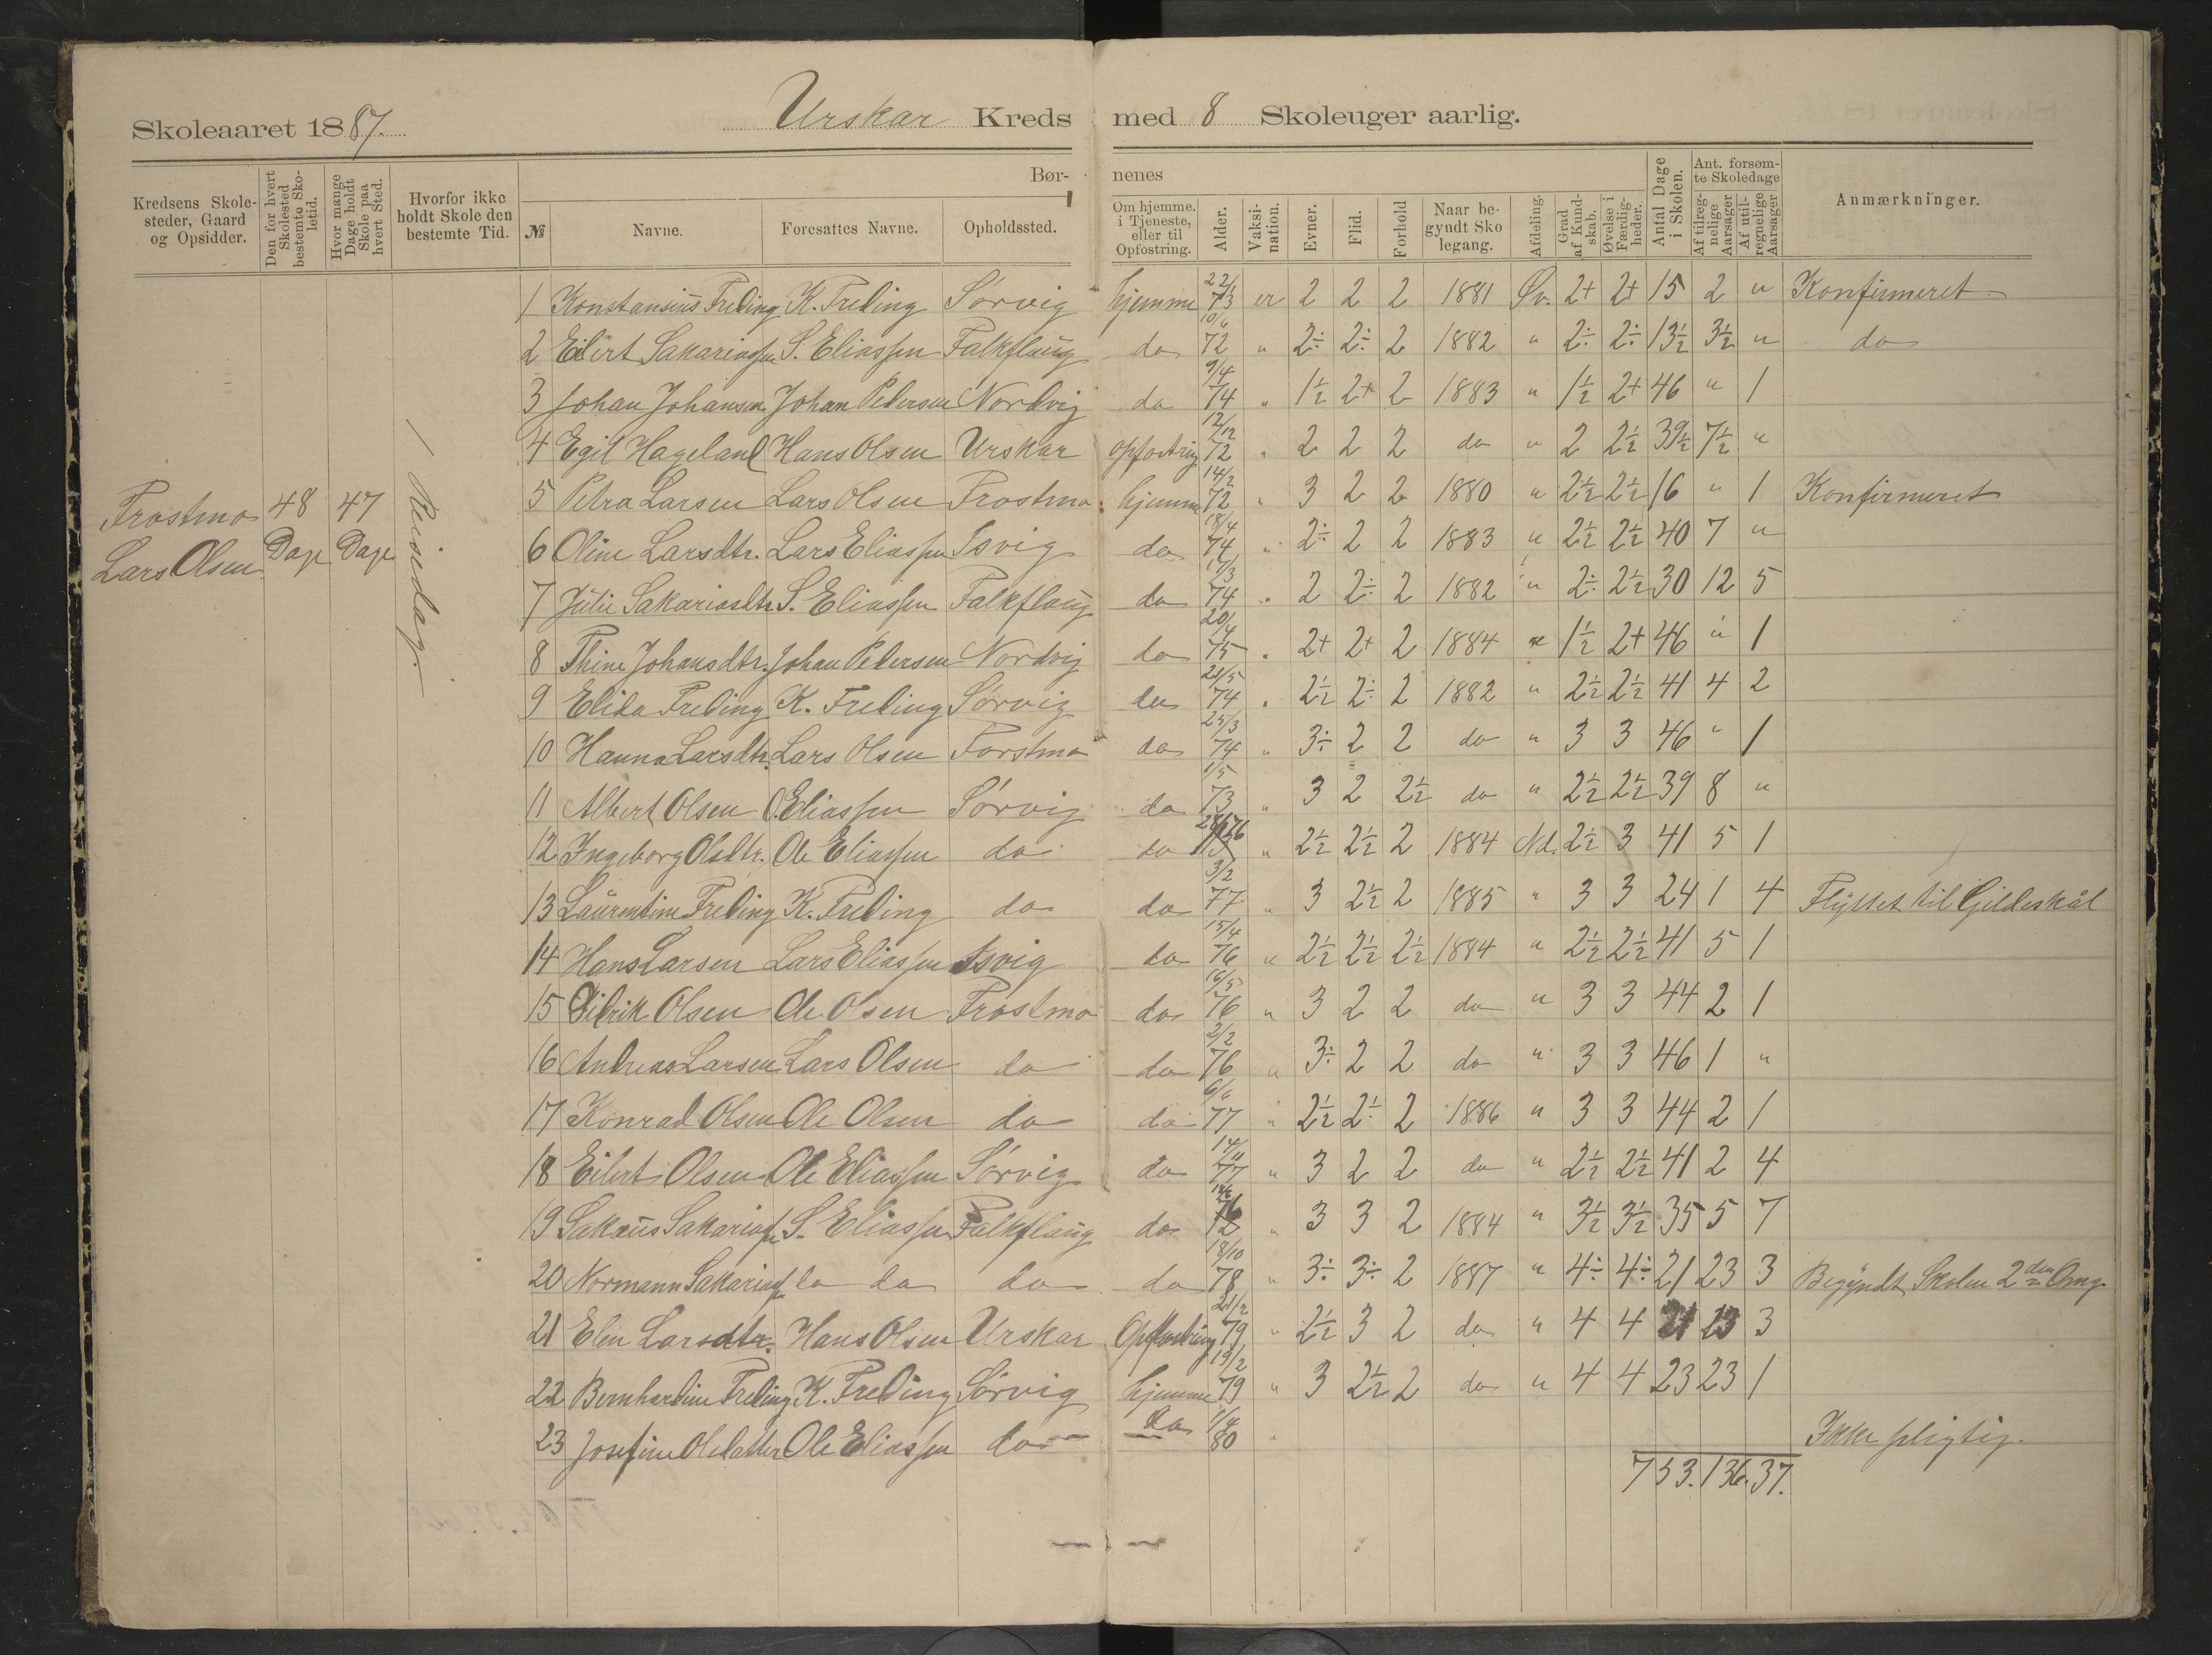 Skoleaaret 1887.
Urskar Kreds med 8 Skoleuger aarlig.
Kredsens Skolesteder, Gaard og Opsidder.
Den for hvert Skolested bestemte Skoletid.
Hvor mange Dage holdt Skole paa hvert Sted.
Hvorfor ikke holdt Skole den bestemte Tid.
Børnenes
№
Navne.
Foresattes Navne.
Opholdssted.
Om hjemme. i Tjeneste, eller til Opfostring.
Alder.
Vaksination.
Evner.
Flid.
Forhold
Naar begyndt Skolegang.
Afdeling.
Grad af Kundskab.
Øvelse i Færdigheder.
Antal Dage i Skolen.
Ant. forsømte Skoledage
Af tilregnelige Aarsager
Af utilregnelige Aarsager
Anmærkninger.
Frostmo 48 47
Lars Olsen Dage Dage
1 Reisedag.
1 Konstansius Freding K. Freding Sørvig hjemme 22/1 73 er 2 2 2 1881 Øv. 2+ 2+ 15 2 " Konfirmeret
2 Eilert Sakariassen S. Eliassen Falkflaug do 10/6 72 " 2÷ 2÷ 2 1882 " 2÷ 2÷ 13½ 3½ " do
3 Johan Johansen Johan Pedersen Nordvig do 9/4 74 " 1½ 2+ 2 1883 " 1½ 2+ 46 " 1
4 Egil Hageland Hans Olsen Urskar opfostring 12/12 72 " 2 2 2 do " 2 2½ 39½ 7½ "
5 Petra Larsen Lars Olsen Frostmo hjemme 14/2 72 " 3 2 2 1880 " 2½ 2½ 16 " 1 Konfirmeret
6 Oline Larsdtr. Lars Eliassen Isvig do 18/4 74 " 2÷ 2 2 1883 " 2½ 2½ 40 7 "
7 Julie Sakariasdtr S. Eliassen Falkflaug do 17/3 74 " 2 2÷ 2 1882 " 2÷ 2½ 30 12 5
8 Thine Johansdtr. Johan Pedersen Nordvig do 20/4 75 " 2+ 2+ 2 1884 " 1½ 2+ 46 " 1
9 Elida Freding K. Freding Sørvig do 21/5 74 " 2½ 2÷ 2 1882 " 2½ 2½ 41 4 2
10 Hanna Larsdtr. Lars Olsen Forstmo do 25/3 74 " 3÷ 2 2 do " 3 3 46 " 1
11 Albert Olsen O. Eliassen Sørvig do 1/5 73 " 3 2 2½ do " 2½ 2½ 39 8 "
12 Ingeborg Olsdtr. Ole Eliassen do do 76 " 2½ 2½ 2 1884 Nd. 2½ 3 41 5 1
13 Laurentine Freding K. Freding do do 3/2 77 " 3 2½ 2 1885 " 3 3 24 1 4 Flyttet til Gildeskål
14 Hans Larsen Lars Eliassen Isvig do 15/4 76 " 2½ 2½ 2½ 1884 " 2½ 2½ 41 5 1
15 Didrik Olsen Ole Olsen Frostmo do 16/5 76 " 3 2 2 do " 3 3 44 2 1
16 Andreas Larsen Lars Olsen do do 2/2 76 " 3÷ 2 2 do " 3 3 46 1 "
17 Konrad Olsen Ole Olsen do do 6/6 77 " 2½ 2÷ 2 1886 " 3 3 44 2 1
18 Eilert Olsen Ole Eliassen Sørvig do 14/11 77 " 3 2 2 do " 2½ 2½ 41 2 4
19 Sakæus Sakariass. S. Eliassen Falkflaug do 76 " 3 3 2 1884 " 3½ 3½ 35 5 7
20 Normann Sakariass. do do do do 18/10 78 " 3÷ 3÷ 2 1887 " 4÷ 4÷ 21 23 3 Begyndt Skolen 2den Omg.
21 Elen Larsdtr. Hans Olsen Urskar Opfostring 21/2 79 " 2½ 3 2 do " 4 4 21 23 3
22 Bernhardine Freding K. Freding Sørvig hjemme 19/2 79 " 3 2½ 2 do " 4 4 23 23 1
23 Josefine Olsdatter Ole Eliassen do do 1/4 80 " Ikke pligtig.
753. 136. 37.